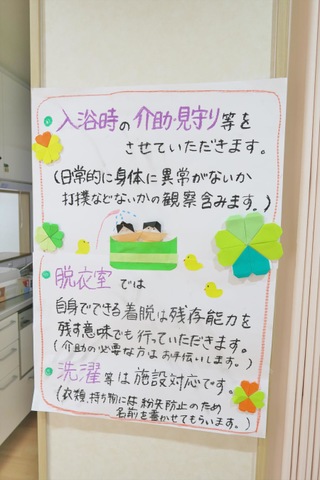 入浴時の介助・見守り等を
させていただきます。
(日常的に身体に異常がないか
打撲などないかの観察含みます。)
脱衣室では
自身でできる着脱は残存能力を
残す意味でも行っていただきます。
(介助の必要な方はお手伝いします。)
洗濯等は施設対応です。
(衣類、持ち物には紛失防止のため
名前を書かせてもらいます。)